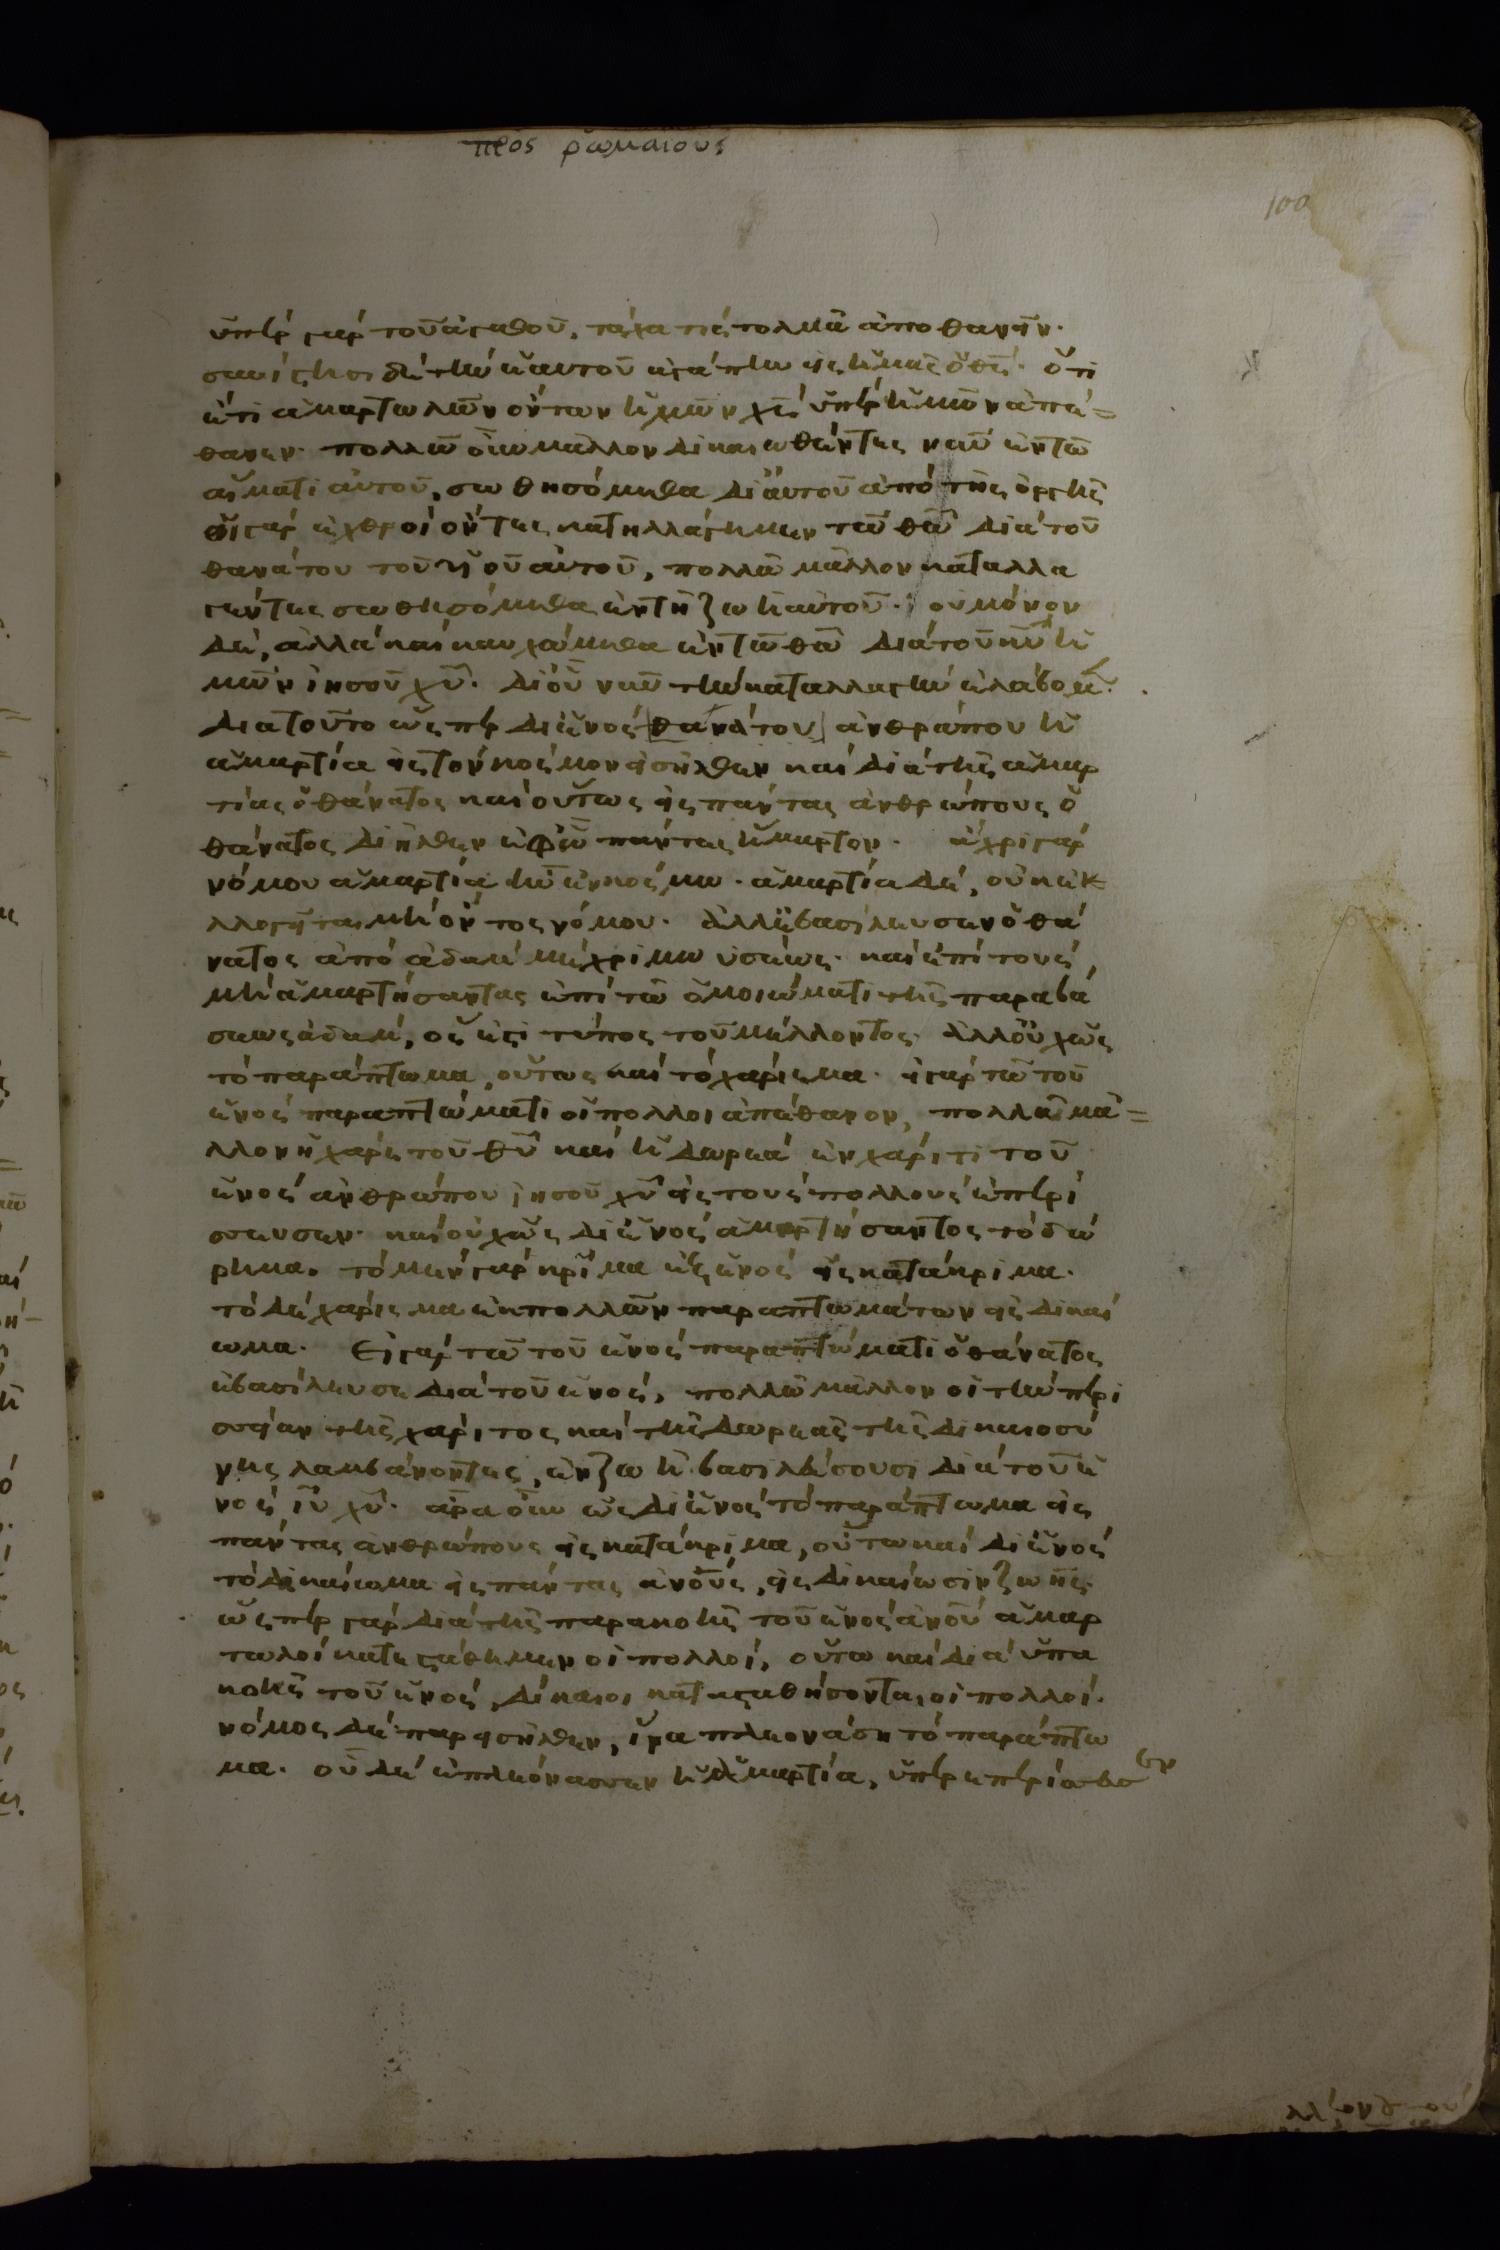 πρὸς ῥωμαίους
100
ὑπὲρ γὰρ τοῦ ἀγαθοῦ, τάχα τίς τολμᾶ ἀποθανεῖν·
συνίστησι δὲ τὴν ἑαυτοῦ ἀγάπην εἰς ἡμᾶς ὁ θς· ὅτι
ἔτι ἁμαρτωλῶν ὄντων ἡμῶν χς ὑπὲρ ἡμῶν ἀπέ=
θανεν· πολλῶ οὖν μᾶλλον δικαιωθέντες νῦν ἐν τῶ
αἵματι αὐτοῦ, σωθησόμεθα δι' αὐτοῦ ἀπὸ τῆς ὀργῆς
εἰ γὰρ ἐχθροὶ ὄντες κατηλλάγημεν τῶ θῶ διὰ τοῦ
θανάτου τοῦ υἱοῦ αὐτοῦ, πολλῶ μᾶλλον καταλλα
γέντες σωθησόμεθα ἐν τῆ ζωῆ αὐτοῦ· οὐ μόνον
δὲ, ἀλλὰ καὶ καυχώμεθα ἐν τῶ θῶ διὰ τοῦ κυ ἡ
μῶν ἰησοῦ χυ· δι' οὗ νῦν τὴν καταλλαγὴν ἐλάβομ·
διατοῦτο ὥσπερ δι' ἑνὸς θανάτου ἀνθρώπου ἡ
ἁμαρτία εἰς τὸν κόσμον εἰσῆλθεν καὶ διὰ τῆς ἁμαρ
τίας ὁ θάνατος καὶ οὕτως εἰς πάντας ἀνθρώπους ὁ
θάνατος διῆλθεν ἐφ' ᾧ πάντες ἥμαρτον· ἄχρι γὰρ
νόμου ἁμαρτία ἦν ἐν κόσμω· ἁμαρτία δὲ, οὐκ ἐκ
λλογεῖται μὴ ὄντος νόμου· ἀλλ' ἐβασίλευσεν ὁ θά
νατος ἀπὸ ἀδὰμ μέχρι μωυσέως· καὶ ἐπὶ τοὺς
μὴ ἁμαρτήσαντας ἐπὶ τῶ ὁμοιώματι τῆς παραβά
σεως ἀδὰμ, ὅς ἐστι τύπος τοῦ μέλλοντος· ἀλλ' οὐχ ὡς
τὸ παράπτωμα, οὕτως καὶ τὸ χάρισμα· εἰ γὰρ τῶ τοῦ
ἑνὸς παραπτώματι οἱ πολλοὶ ἀπέθανον, πολλῶ μᾶ=
λλον ἡ χάρις τοῦ θυ καὶ ἡ δωρεὰ ἐν χάριτι τοῦ
ἑνὸς ἀνθρώπου ἰησοῦ χυ εἰς τοὺς πολλοὺς ἐπερί
σσευσεν· καὶ οὐχ ὡς δι' ἑνὸς ἁμαρτήσαντος τὸ δώ
ρημα· τὸ μὲν γὰρ κρῖμα ἐξ ἑνὸς εἰς κατάκριμα·
τὸ δὲ χάρισμα ἐκ πολλῶν παραπτωμάτων εἰς δικαί
ωμα· Εἰ γὰρ τῶ τοῦ ἑνὸς παραπτώματι ὁ θάνατος
ἐβασίλευσε διὰ τοῦ ἑνὸς, πολλῶ μᾶλλον οἱ τὴν περι
σσείαν τῆς χάριτος καὶ τῆς δωρεᾶς τῆς δικαιοσύ
νης λαμβάνοντες, ἐν ζωῆ βασιλεύσουσι διὰ τοῦ ἑ
νὸς ιυ χυ· ἄρα οὖν ὡς δι' ἑνὸς τὸ παράπτωμα εἰς
πάντας ἀνθρώπους εἰς κατάκριμα, οὕτω καὶ δι' ἑνὸς
τὸ δικαίωμα εἰς πάντας ἀνους, εἰς δικαίωσιν ζωῆς·
ὥσπερ γὰρ διὰ τῆς παρακοῆς τοῦ ἑνὸς ἀνου ἁμαρ
τωλοὶ κατεστάθημεν οἱ πολλοί, οὕτω καὶ διὰ ὑπα
κοῆς τοῦ ἑνὸς, δίκαιοι κατασταθήσονται οἱ πολλοί·
νόμος δὲ παρεισῆλθεν, ἵνα πλεονάση τὸ παράπτω
μα· οὗ δὲ ἐπλεόνασσεν ἡ ἁμαρτία, ὑπερεπερίσσευσεν